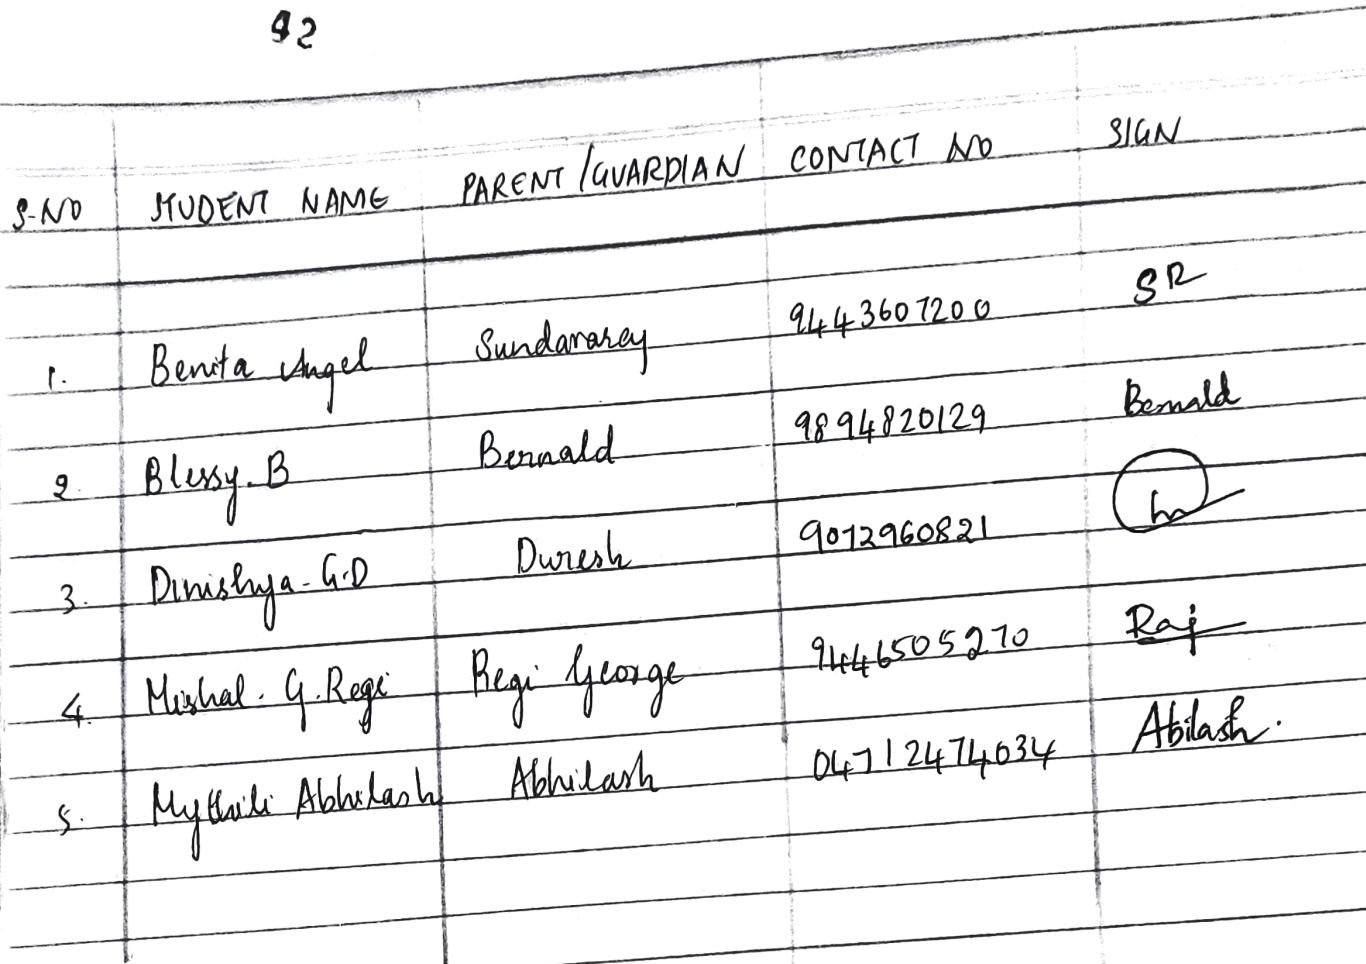 92
S-NO STUDENT NAME PARENT/GUARDIAN CONTACT NO SIGN
1. Benita Angel Sundararaj 9443607200 SR
2. Blessy.B Bernald 9894820129 Bernald
3. Dinishya-G.D Duresh 9072960821
4. Mishal.G.Regi Regi George 9446505270 Raj
5. Mythili Abhilash Abhilash 04712474034 Abilash.